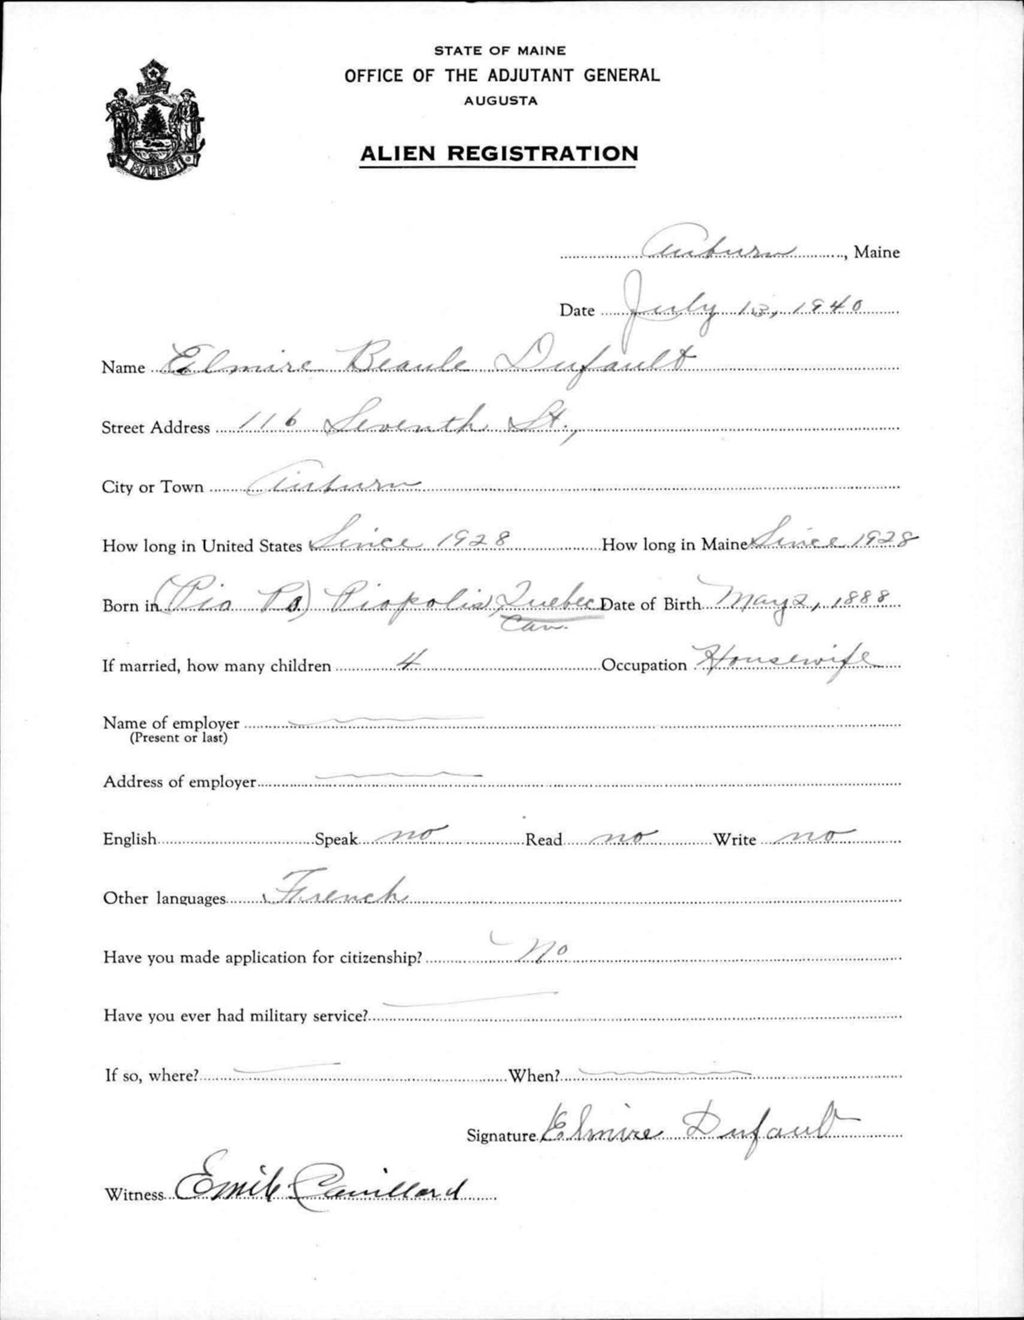 STATE OF MAINE
OFFICE OF THE ADJUTANT GENERAL
AUGUSTA
ALIEN REGISTRATION
MAINE
Auburn, Maine
Date July 13, 1940
Name Elmire Beaule Dufault
Street Address 116 Seventh St.,
City or Town Auburn
How long in United States Since 1928 How long in Maine Since 1928
Born in (Pio Po.) Piopolis, Quebec Date of Birth May 2, 1888
Can.
If married, how many children 4 Occupation Housewife
Name of employer
(Present or last)
Address of employer
English Speak no Read no Write no
Other languages French
Have you made application for citizenship? No
Have you ever had military service?
If so, where? When?
Signature Elmire Dufault
Witness Emile